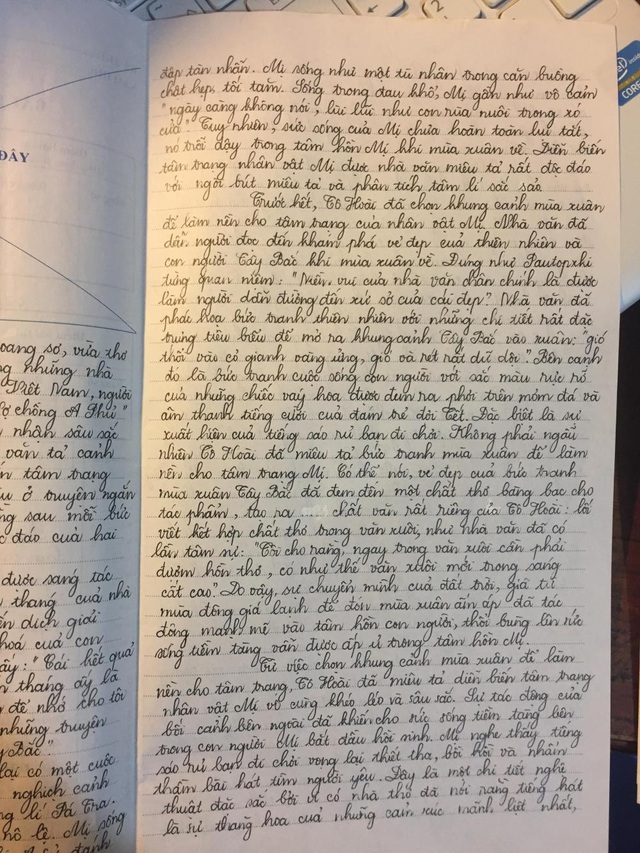 ĐÂY
oang sơ, vừa thơ
g nhưng nhà
Việt Nam, người
ợ chồng A Phủ"
n nhân sâu sắc
văn tả cảnh
n tâm trạng
u ở truyện ngắn
ng sau mỗi bức
c đáo của hai
được sáng tác
n tháng của nhà
ến dịch giải
hoá của con
ấy: "Cái kết quả
n tháng ấy là
để nhớ cho tôi
những truyện
y Bắc".
lại có một cuộc
nghịch cảnh
g lí Pá Tra.
nô lệ. Mị sống
đập tàn nhẫn. Mị sống như một tù nhân trong căn buồng
chật hẹp, tối tăm. Sống trong đau khổ, Mị gần như vô cảm
"ngày càng không nói, lùi lũi như con rùa nuôi trong xó
cửa". Tuy nhiên, sức sống của Mị chưa hoàn toàn lụi tắt,
nó trỗi dậy trong tâm hồn Mị khi mùa xuân về. Diễn biến
tâm trạng nhân vật Mị được nhà văn miêu tả rất độc đáo
với ngòi bút miêu tả và phân tích tâm lí sắc sảo.
Trước hết, Tô Hoài đã chọn khung cảnh mùa xuân
để làm nền cho tâm trạng của nhân vật Mị. Nhà văn đã
dẫn người đọc đến khám phá vẻ đẹp của thiên nhiên và
con người Tây Bắc khi mùa xuân về. Đúng như Pautopxki
từng quan niệm: "Niềm vui của nhà văn chân chính là được
làm người dẫn đường đến xứ sở của cái đẹp". Nhà văn đã
phác họa bức tranh thiên nhiên với những chi tiết rất đặc
trưng tiêu biểu để mở ra khung cảnh Tây Bắc vào xuân: "gió
thổi vào cỏ gianh vàng ửng, gió và rét rất dữ dội". Bên cạnh
đó là bức tranh cuộc sống con người với sắc màu rực rỡ
của những chiếc váy hoa được đem ra phơi trên mỏm đá và
âm thanh tiếng cười của đám trẻ đợi Tết. Đặc biệt là sự
xuất hiện của tiếng sáo rủ bạn đi chơi. Không phải ngẫu
nhiên Tô Hoài đã miêu tả bức tranh mùa xuân để làm
nền cho tâm trạng Mị. Có thể nói, vẻ đẹp của bức tranh
mùa xuân Tây Bắc đã đem đến một chất thơ bàng bạc cho
tác phẩm, tạo ra chất văn rất riêng của Tô Hoài: lối
viết kết hợp chất thơ trong văn xuôi, như nhà văn đã có
lần tâm sự: "Tôi cho rằng, ngay trong văn xuôi cần phải
đượm hồn thơ, có như thế văn xuôi mới trong sáng
cất cao". Do vậy, sự chuyển mình của đất trời, giã từ
mùa đông giá lạnh để đón mùa xuân ấm áp đã tác
động mạnh mẽ vào tâm hồn con người, thổi bùng lên sức
sống tiềm tàng vẫn được ấp ủ trong tâm hồn Mị.
Từ việc chọn khung cảnh mùa xuân để làm
nền cho tâm trạng, Tô Hoài đã miêu tả diễn biến tâm trạng
nhân vật Mị vô cùng khéo léo và sâu sắc. Sự tác động của
bối cảnh bên ngoài đã khiến cho sức sống tiềm tàng bên
trong con người Mị bắt đầu hồi sinh. Mị nghe thấy tiếng
sáo rủ bạn đi chơi vọng lại thiết tha, bồi hồi và nhẩm
thầm bài hát tìm người yêu. Đây là một chi tiết nghệ
thuật đặc sắc bởi vì có nhà thơ đã nói rằng tiếng hát
là sự thăng hoa của những cảm xúc mãnh liệt nhất,